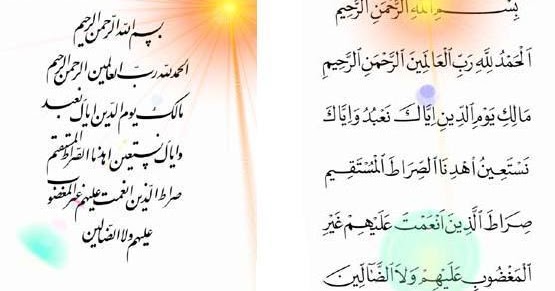 بسم الله الرحمن الرحيم
الحمد لله رب العالمين الرحمن الرحيم
مالك يوم الدين اياك نعبد
واياك نستعين اهدنا الصراط المستقيم
صراط الذين انعمت عليهم غير المغضوب
عليهم ولا الضالين
بِسْمِ اللَّهِ الرَّحْمَنِ الرَّحِيمِ
اَلْحَمْدُ لِلَّهِ رَبِّ الْعَالَمِينَ الرَّحْمَنِ الرَّحِيمِ
مَالِكِ يَوْمِ الدِّينِ اِيَّاكَ نَعْبُدُ وَاِيَّاكَ
نَسْتَعِينُ اِهْدِنَا الصِّرَاطَ الْمُسْتَقِيمَ
صِرَاطَ الَّذِينَ اَنْعَمْتَ عَلَيْهِمْ غَيْرِ
الْمَغْضُوبِ عَلَيْهِمْ وَلاَ الضَّالِّينَ